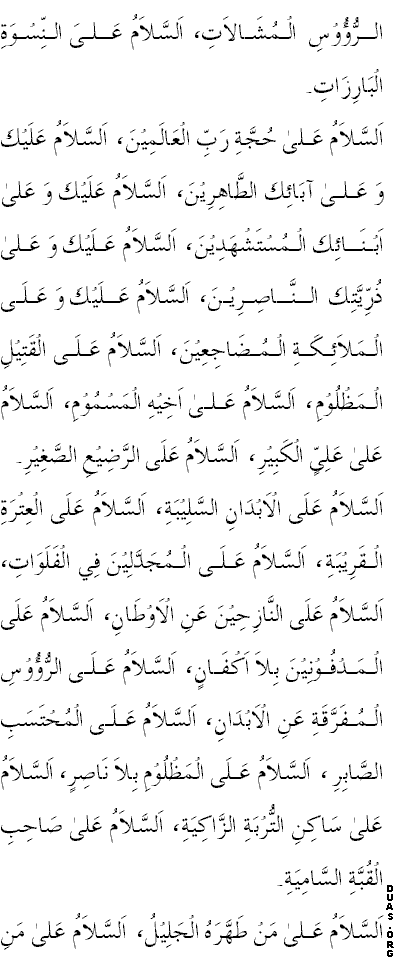 الرُّؤُوْسِ الْمُشَالاَتِ، اَلسَّلاَمُ عَلىَ النِّسْوَةِ
الْبَارِزَاتِ۔
اَلسَّلاَمُ عَلىٰ حُجَّةِ رَبِّ الْعَالَمِيْنَ، اَلسَّلاَمُ عَلَيْكَ
وَ عَلىٰ آبَائِكَ الطَّاهِرِيْنَ، اَلسَّلاَمُ عَلَيْكَ وَ عَلىٰ
اَبْنَائِكَ الْمُسْتَشْهَدِيْنَ، اَلسَّلاَمُ عَلَيْكَ وَ عَلىٰ
ذُرِّيَّتِكَ النَّاصِرِيْنَ، اَلسَّلاَمُ عَلَيْكَ وَ عَلَى
الْمَلاَئِكَةِ الْمُضَاجِعِيْنَ، اَلسَّلاَمُ عَلَى الْقَتِيْلِ
الْمَظْلُوْمِ، اَلسَّلاَمُ عَلىٰ اَخِيْهِ الْمَسْمُوْمِ، اَلسَّلاَمُ
عَلىٰ عَلِيٍّ الْكَبِيْرِ، اَلسَّلاَمُ عَلَى الرَّضِيْعِ الصَّغِيْرِ۔
اَلسَّلاَمُ عَلَى الْاَبْدَانِ السَّلِيْبَةِ، اَلسَّلاَمُ عَلَى الْعِتْرَةِ
الْقَرِيْبَةِ، اَلسَّلاَمُ عَلَى الْمُجَدَّلِيْنَ فِي الْفَلَوَاتِ،
اَلسَّلاَمُ عَلَى النَّازِحِيْنَ عَنِ الْاَوْطَانِ، اَلسَّلاَمُ عَلَى
الْمَدْفُوْنِيْنَ بِلاَ اَكْفَانٍ، اَلسَّلاَمُ عَلَى الرُّؤُوْسِ
الْمُفَرَّقَةِ عَنِ الْاَبْدَانِ، اَلسَّلاَمُ عَلَى الْمُحْتَسَبِ
الصَّابِرِ ، اَلسَّلاَمُ عَلَى الْمَظْلُوْمِ بِلاَ نَاصِرٍ، اَلسَّلاَمُ
عَلىٰ سَاكِنِ التُّرْبَةِ الزَّاكِيَةِ، اَلسَّلاَمُ عَلىٰ صَاحِبِ
الْقُبَّةِ السَّامِيَةِ۔
اَلسَّلاَمُ عَلىٰ مَنْ طَهَّرَهُ الْجَلِيْلُ، اَلسَّلاَمُ عَلىٰ مَنِ
DUAS.ORG